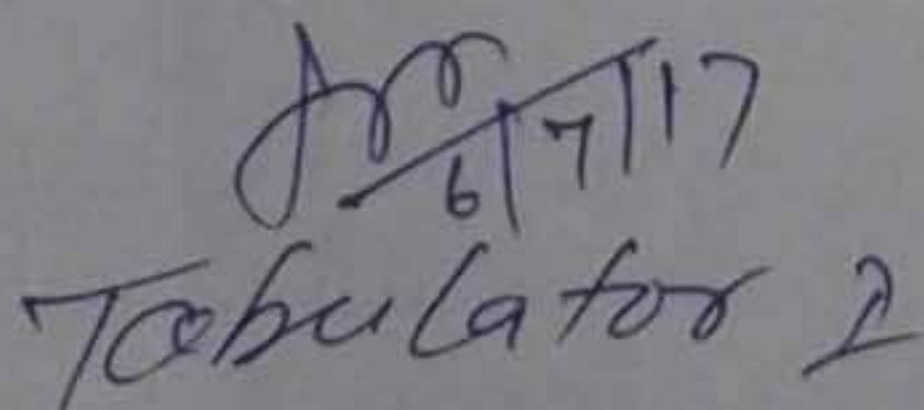 6/7/17
Tabulator 2